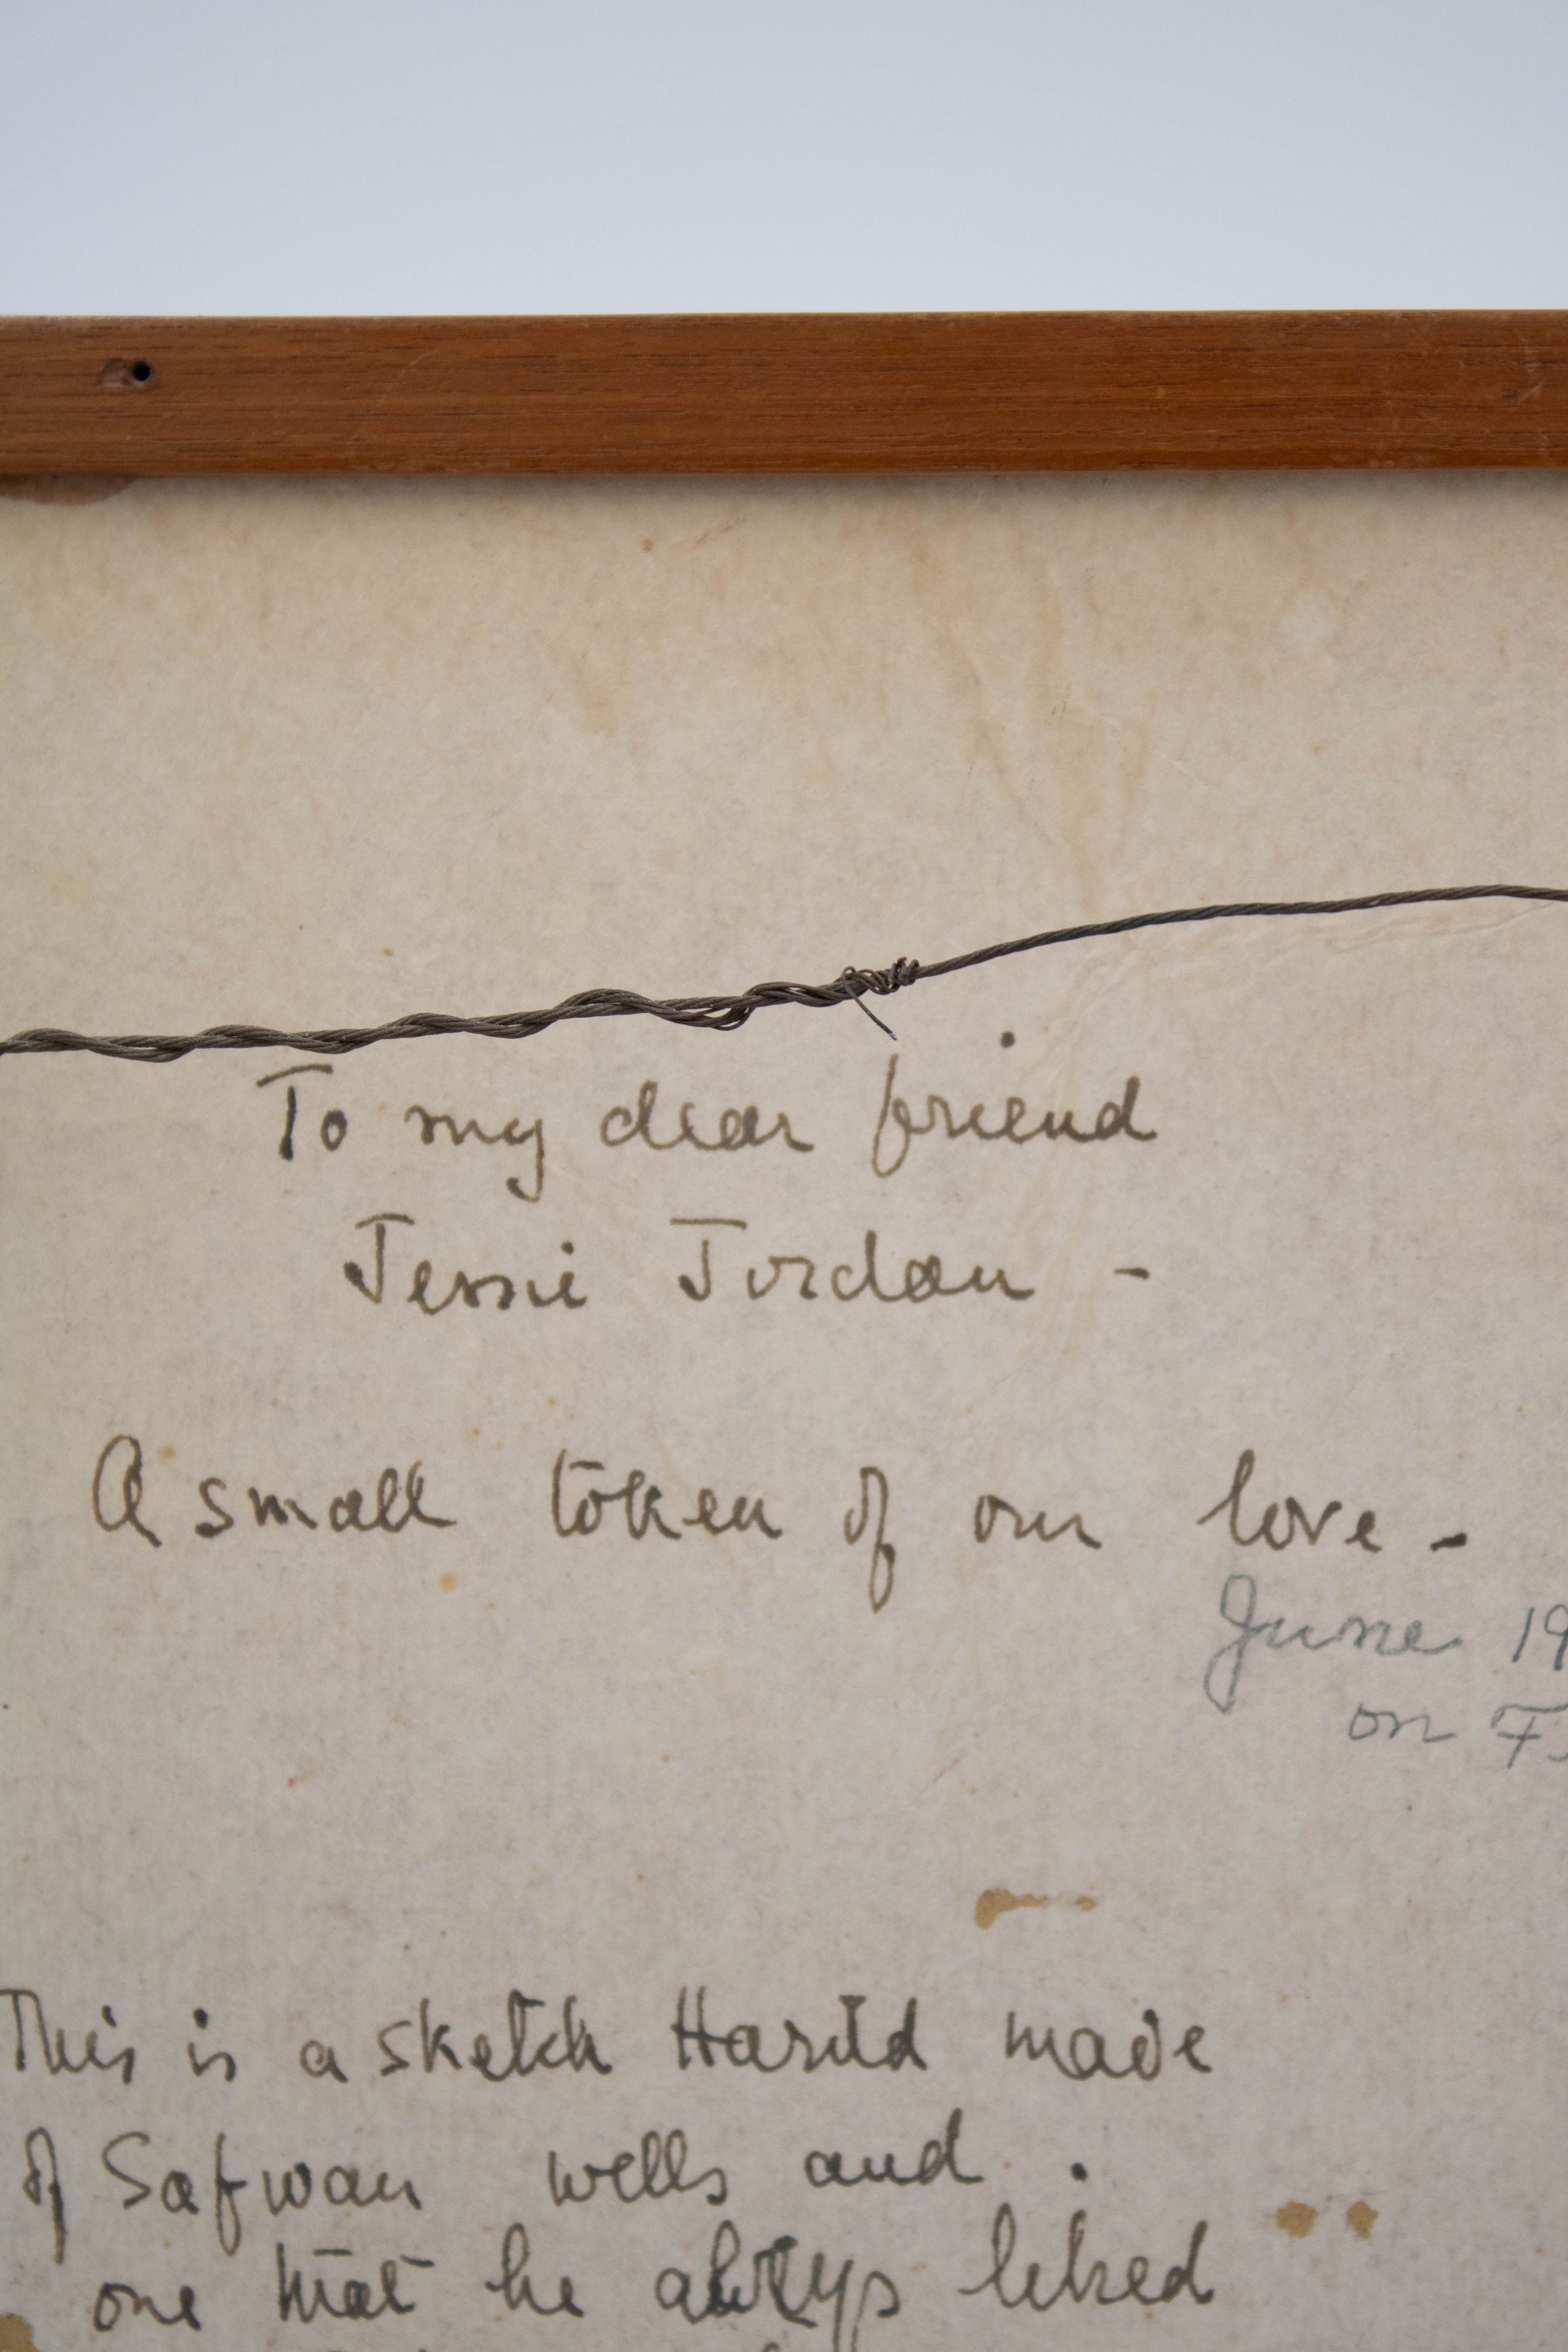 To my dear friend
Jessie Jordan -
A small token of our love -
June 19
on F
This is a sketch Harold made
of Safwan wells and
one that he always liked